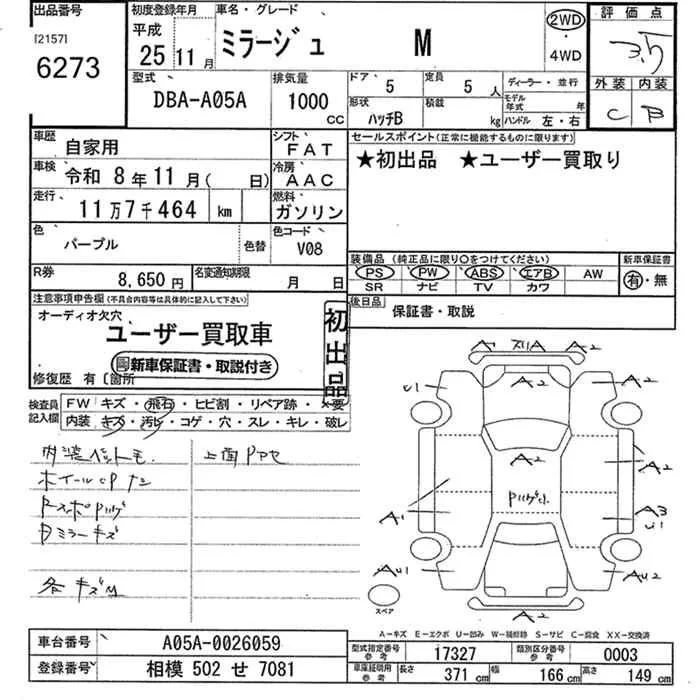 出品番号
[2157]
6273
初度登録年月
平成
25 11 月
車名・グレード
ミラージュ M
2WD
・
4WD
評価点
3.5
外装 内装
C B
型式
DBA-A05A
排気量
1000
CC
ドア 5
定員 5 人
形状
ハッチB
積載
kg
ディーラー・並行
モデル年式 年
ハンドル 左・右
車歴
自家用
シフト
FAT
車検
令和 8年 11月( 日)
冷房
AAC
走行
11万7千464 km
燃料
ガソリン
色
パープル
色替
色コード
V08
R券
8,650円
名変通知期限
月 日
セールスポイント(正常に機能するものに限ります)
★初出品 ★ユーザー買取り
装備品(純正品に限り○をつけてください)
PS PW ABS エアB AW
SR ナビ TV カワ
新車保証書
有・無
後日品
保証書・取説
注意事項申告欄(不具合内容等は具体的に記入して下さい)
オーディオ欠穴
ユーザー買取車
新車保証書・取説付き
初出品
修復歴 有〔箇所
検査員
記入欄
FW キズ・飛石・ヒビ割・リペア跡・×要
内装 キズ・汚レ・コゲ・穴・スレ・キレ・破レ
上面
ミラーキズ
各キズ
A A2
U1 A2
A2 A2
A1 A3
U1
AU1 AU2
A2
スペア
A-キズ E-エクボ U-凹み W-補修跡 S-サビ C-腐食 XX-交換済
車台番号
A05A-0026059
登録番号
相模 502 せ 7081
型式指定番号
参考
17327
類別区分番号
参考
0003
車庫証明用
参考
長さ 371 cm 幅 166 cm 高さ 149 cm